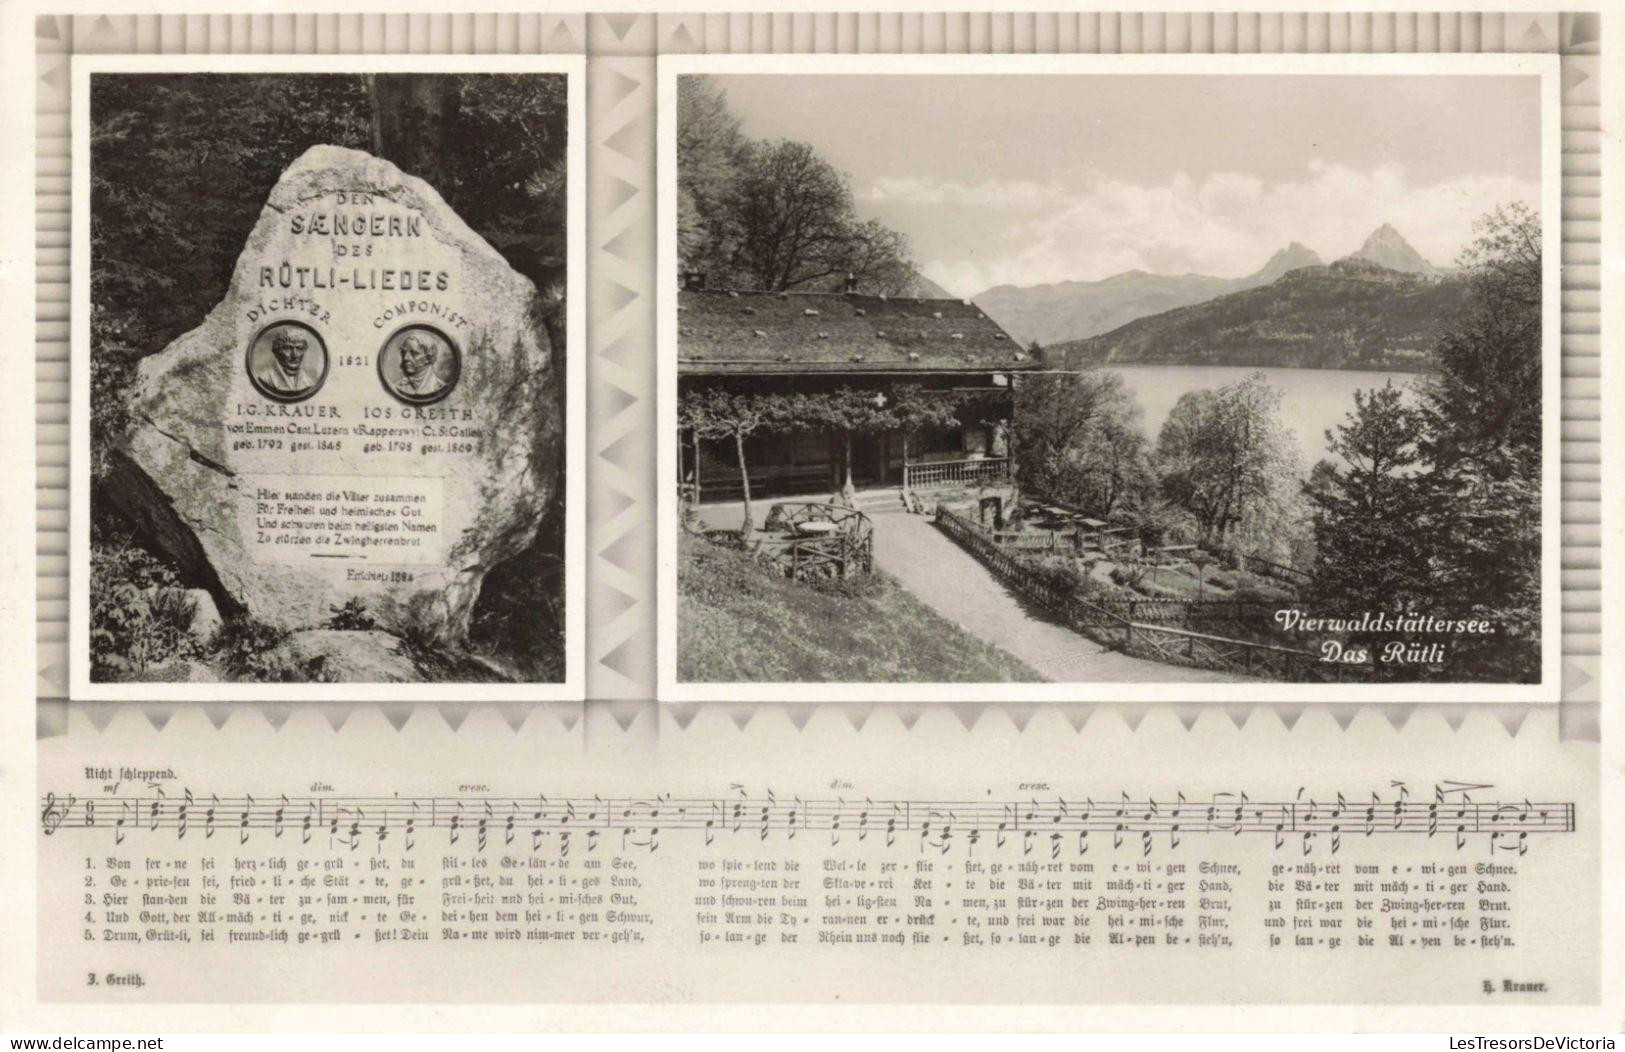 DEN
SÆNGERN
DES
RÜTLI-LIEDES
DICHTER COMPONIST
1821
I.G. KRAUER IOS GREITH
von Emmen Cant. Luzern v. Rapperswyl Ct. St. Gallen
geb. 1792 gest. 1845 geb. 1798 gest. 1869
Hier standen die Väter zusammen
Für Freiheit und heimisches Gut
Und schwuren beim heiligsten Namen
Zu stürzen die Zwingherrenbrut
Errichtet
Vierwaldstättersee.
Das Rütli
Nicht schleppend.
mf dim. cresc. dim. cresc. f
6
8
1. Von fer-ne sei herz-lich ge-grü-ßet, du stil-les Ge-län-de am See, wo spie-lend die Wel-le zer-flie-ßet, ge-näh-ret vom e-wi-gen Schnee, ge-näh-ret vom e-wi-gen Schnee.
2. Ge-prie-sen sei, fried-li-che Stät-te, ge-grü-ßet, du hei-li-ges Land, wo spreng-ten der Skla-ve-rei Ket-te die Vä-ter mit mäch-ti-ger Hand, die Vä-ter mit mäch-ti-ger Hand.
3. Hier stan-den die Vä-ter zu-sam-men, für Frei-heit und hei-mi-sches Gut, und schwu-ren beim hei-lig-sten Na-men, zu stür-zen der Zwing-her-ren Brut, zu stür-zen der Zwing-her-ren Brut.
4. Und Gott, der All-mäch-ti-ge, nick-te Ge-dei-hen dem hei-li-gen Schwur, sein Arm die Ty-ran-nen er-drück-te, und frei war die hei-mi-sche Flur, und frei war die hei-mi-sche Flur.
5. Drum, Grüt-li, sei freund-lich ge-grü-ßet! Dein Na-me wird nim-mer ver-geh'n, so-lan-ge der Rhein uns noch flie-ßet, so-lan-ge die Al-pen be-steh'n, so lan-ge die Al-pen be-steh'n.
J. Greith. H. Krauer.
www.delcampe.net LesTresorsDeVictoria